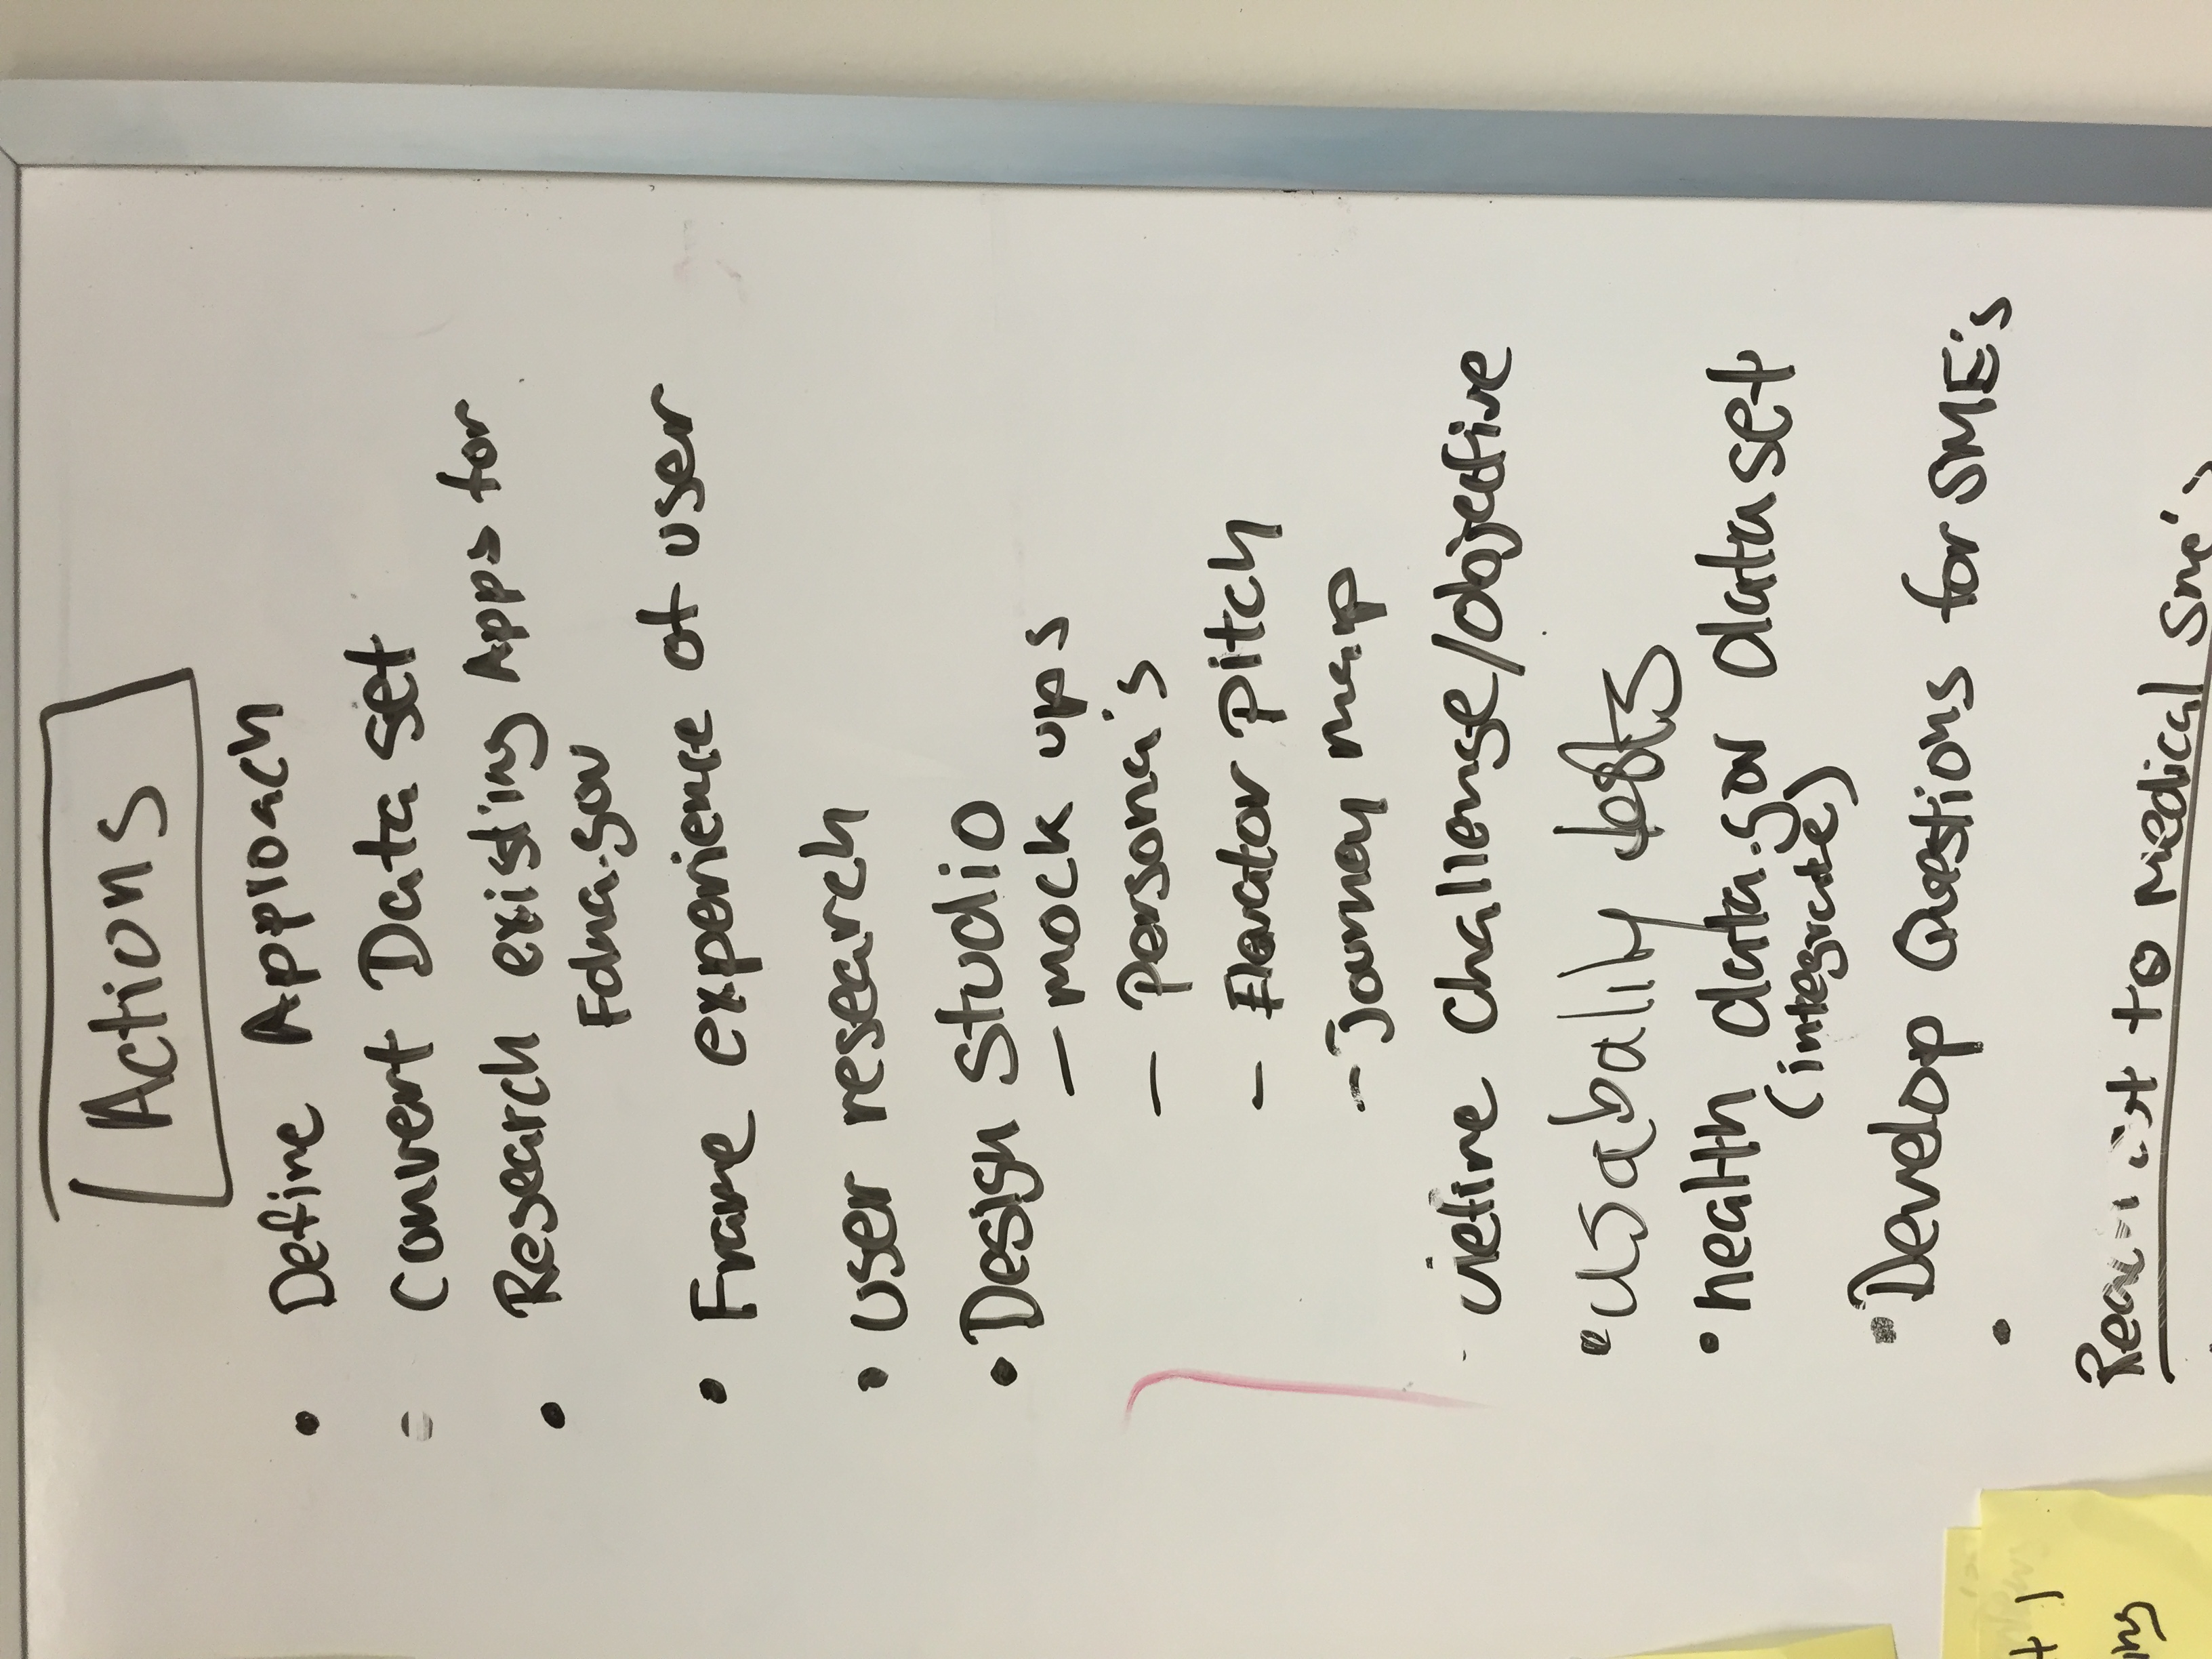 Actions
• Define Approach
Convert Data set
• Research existing Apps for
Fdna.gov
• Frame experience of user
• User research
• Design Studio
— mock ups
— Persona's
— Elevator Pitch
- Journey map
- define Challenge/objective
• Usabality tests
• health data.gov dataset
(integrate)
• Develop Questions for SME's
•
to Medical Sme's